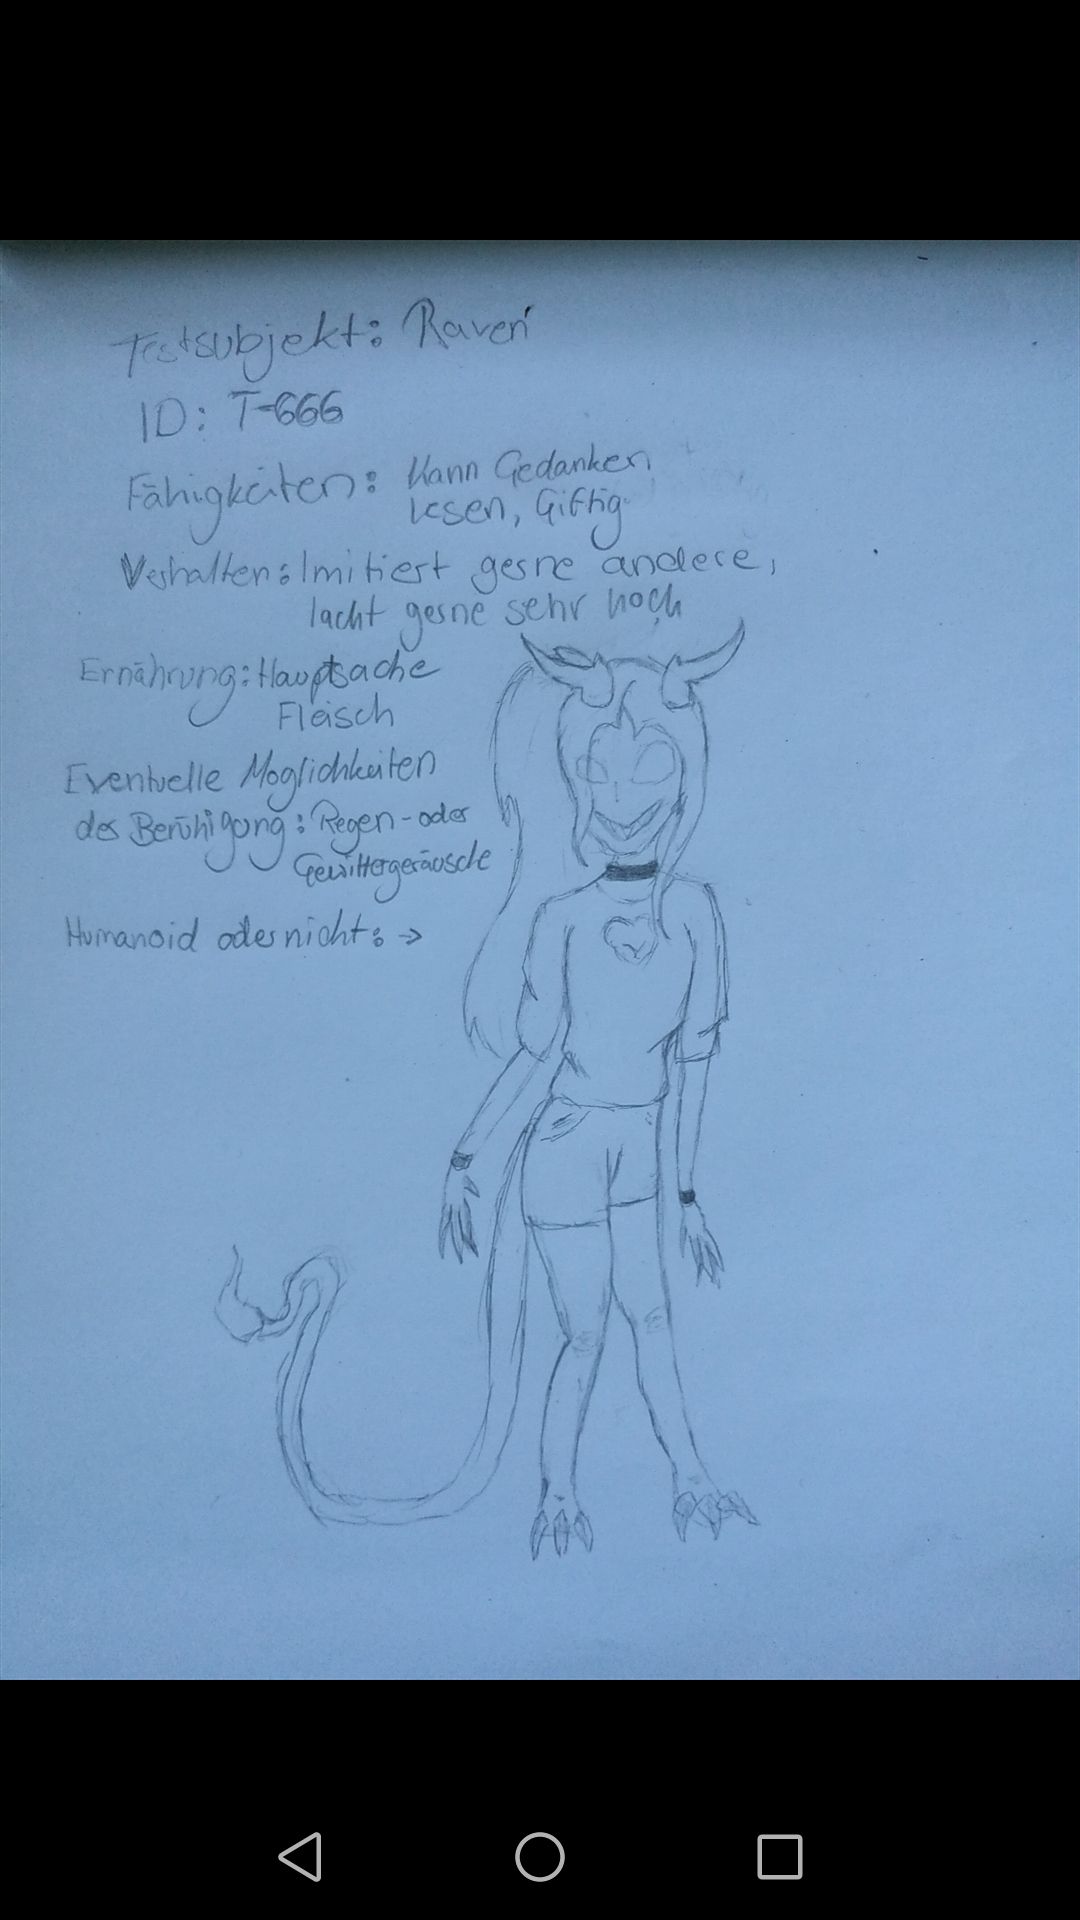 Testsubjekt: Raven
ID: T-666
Fähigkeiten: Kann Gedanken
lesen, Giftig
Verhalten: Imitiert gerne andere,
lacht gerne sehr hoch
Ernährung: Hauptsache
Fleisch
Eventuelle Möglichkeiten
der Beruhigung: Regen- oder
Gewittergeräusche
Humanoid oder nicht: →